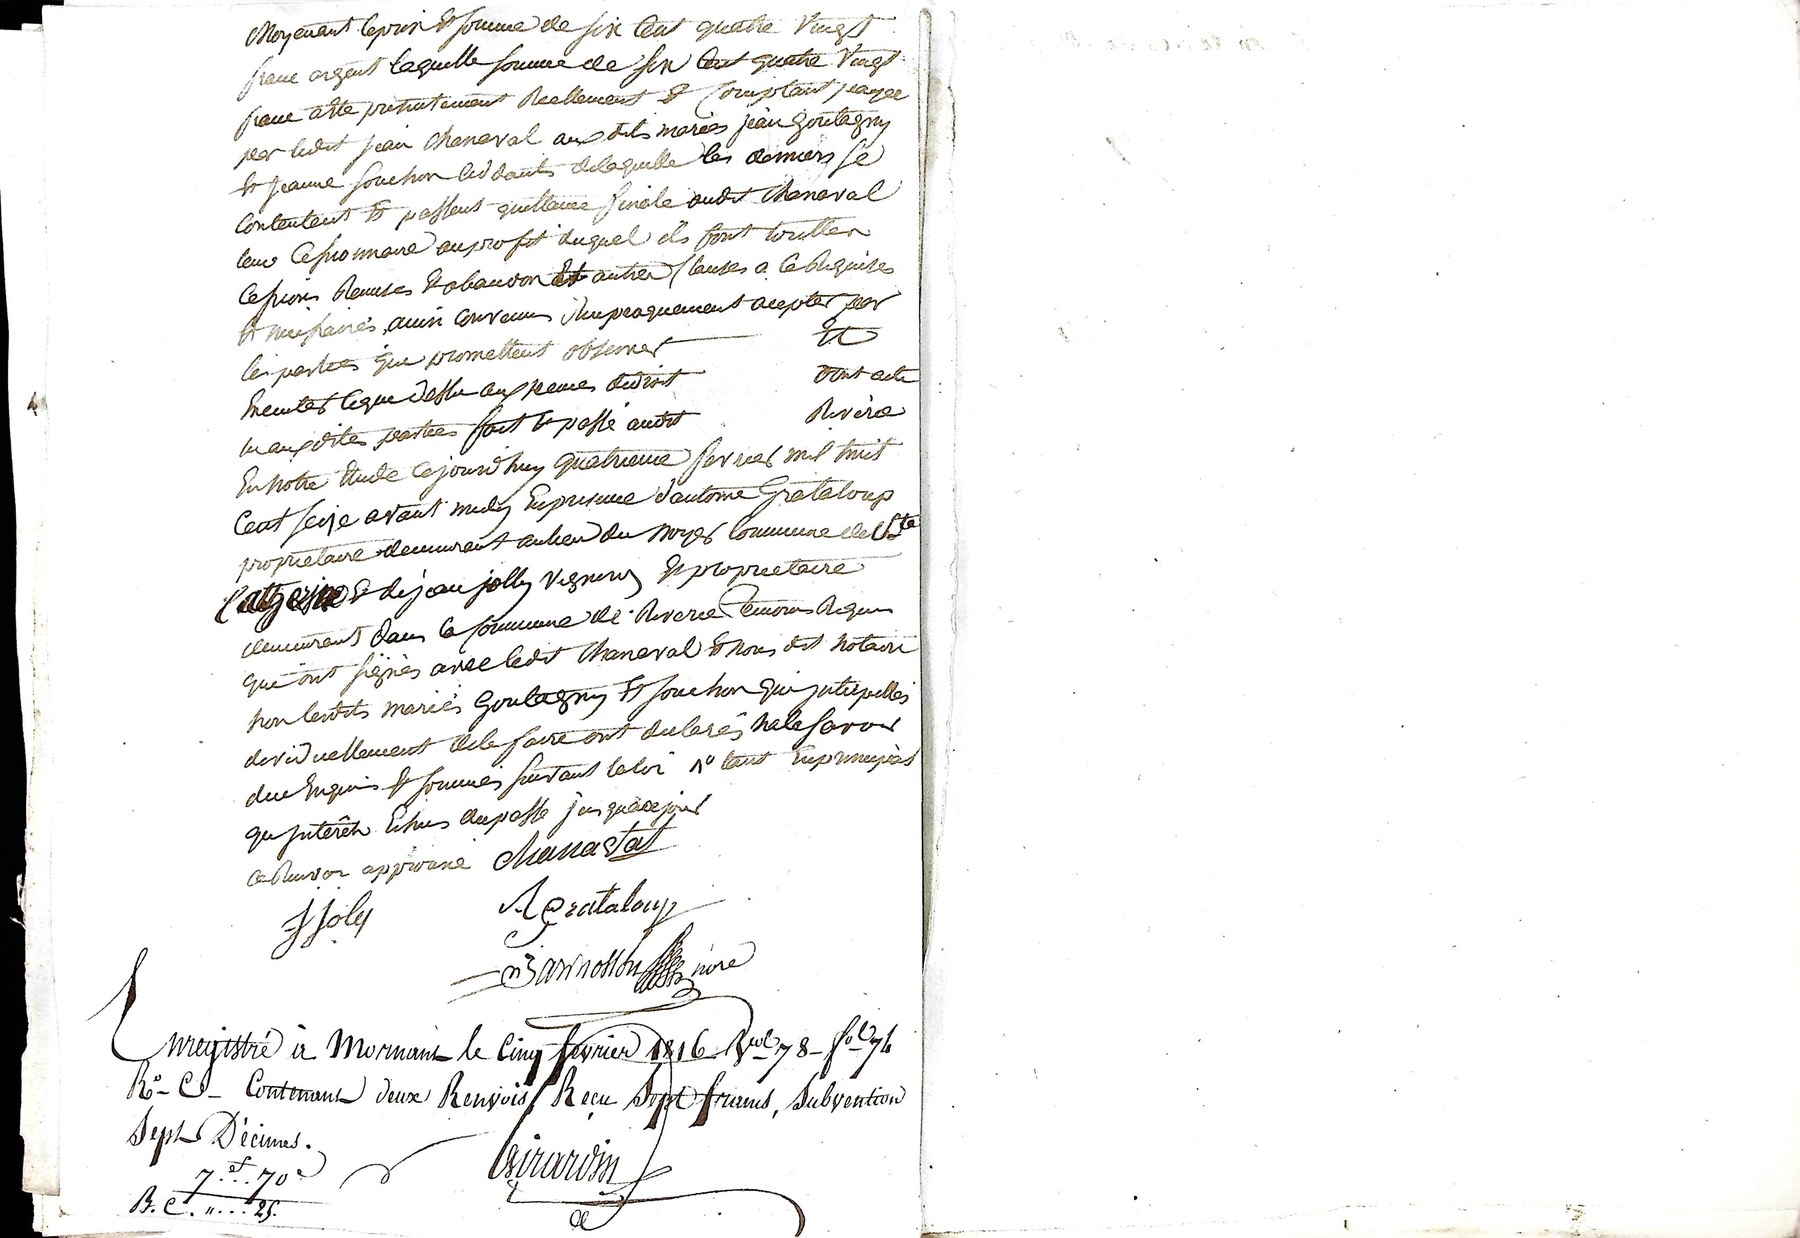 Moyenant le prix et somme de six Cent quatre Vingt
franc argent laquelle somme de six Cent quatre Vingt
franc a été présentement Reellement et Comptant payée
par ledit jean Chanaval aux dits mariés jean Goutagny
et jeanne souchon Cédants de laquelle les derniers se
Contentent et passent quittance finale audit Chanaval
leur Cessionnaire au profit duquel ils font toutte
Cession Remises et abandon Et autres Clauses a ce Requises
et necessaires, ainsi Convenu Réciproquement accepter par
les parties que promettent observer Et
Executer ce que dessus aux peines de droit dont acte
lu aux dites parties fait et passé audit Riverie
En notre Etude Cejourd'huy quatrieme fevrier mil huit
Cent seize avant midy En presence d'antoine Grataloup
propriétaire demeurant au lieu du Noyer Commune de Ste
Catherine et de jean jolly Vigneron et propriétaire
demeurant dans la Commune de Riverie Temoins Requis
que ont signés avec ledit Chanaval et nous dit notaire
non lesdits mariés Goutagny et souchon qui interpellés
dividuellement de le faire ont declarés ne le savoir
due Enquis et sommés suivant la loi 1º tant En principal
qu'intérêts Echus du passé jusqu'a ce jour
ce Renvoi approuvé Chanavat
J Joly A Grataloup
nore
Enregistré à Mornant le Cinq février 1816 Vol 78 - fol 74
Rº C - Contenant deux Renvois, Reçu Sept francs, Subvention
Sept Décimes.
7f...70c
B. C. "....25.
Girardin